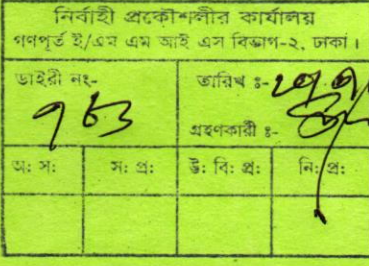 নির্বাহী প্রকৌশলীর কার্যালয়
গণপূর্ত ই/এম এম আই এস বিভাগ-২, ঢাকা।
ডাইরী নং-
তারিখ ঃ-
৭৮৩
গ্রহণকারী ঃ-
অ: স: স: প্র: উ: বি: প্র: নি: প্র: